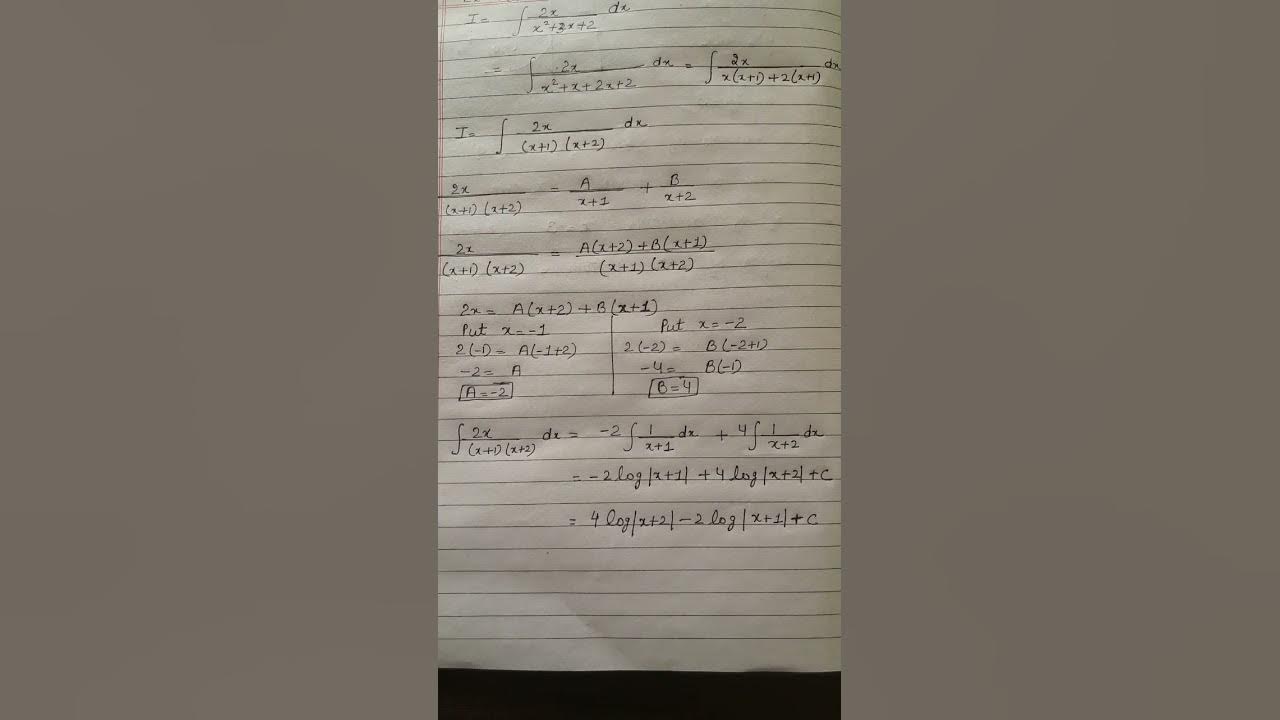 I = ∫ 2x/(x²+3x+2) dx
= ∫ 2x/(x²+x+2x+2) dx = ∫ 2x/(x(x+1)+2(x+1)) dx
I = ∫ 2x/((x+1)(x+2)) dx
2x/((x+1)(x+2)) = A/(x+1) + B/(x+2)
2x/((x+1)(x+2)) = (A(x+2)+B(x+1))/((x+1)(x+2))
2x = A(x+2)+B(x+1)
Put x=-1
2(-1) = A(-1+2)
-2 = A
A=-2
Put x=-2
2(-2) = B(-2+1)
-4 = B(-1)
B=4
∫ 2x/((x+1)(x+2)) dx = -2 ∫ 1/(x+1) dx + 4 ∫ 1/(x+2) dx
= -2 log|x+1| + 4 log|x+2| + C
= 4 log|x+2| - 2 log|x+1| + C